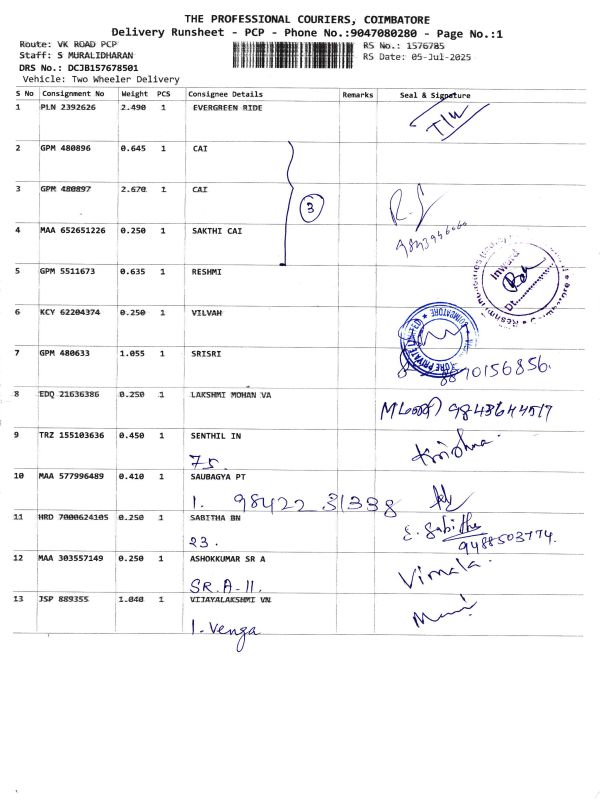 THE PROFESSIONAL COURIERS, COIMBATORE
Delivery Runsheet - PCP - Phone No.:9047080280 - Page No.:1
Route: VK ROAD PCP RS No.: 1576785
Staff: S MURALIDHARAN RS Date: 05-Jul-2025
DRS No.: DCJB157678501
Vehicle: Two Wheeler Delivery
S No Consignment No Weight PCS Consignee Details Remarks Seal & Signature
1 PLN 2392626 2.490 1 EVERGREEN RIDE
2 GPM 480896 0.645 1 CAI
3
3 GPM 480897 2.670 1 CAI
4 MAA 652651226 0.250 1 SAKTHI CAI
5 GPM 5511673 0.635 1 RESHMI
Inward
6 KCY 62204374 0.250 1 VILVAH
7 GPM 480633 1.055 1 SRISRI
8870156856.
8 EDQ 21636386 0.250 1 LAKSHMI MOHAN VA
9843644517
9 TRZ 155103636 0.450 1 SENTHIL IN Krishna.
75.
10 MAA 577996489 0.410 1 SAUBAGYA PT
1. 98422 31338
11 HRD 7000624105 0.250 1 SABITHA BN S. Sabitha
23. 9488503774.
12 MAA 303557149 0.250 1 ASHOKKUMAR SR A Vimala.
SR.A-11.
13 JSP 889355 1.040 1 VIJAYALAKSHMI VN
1. Venga